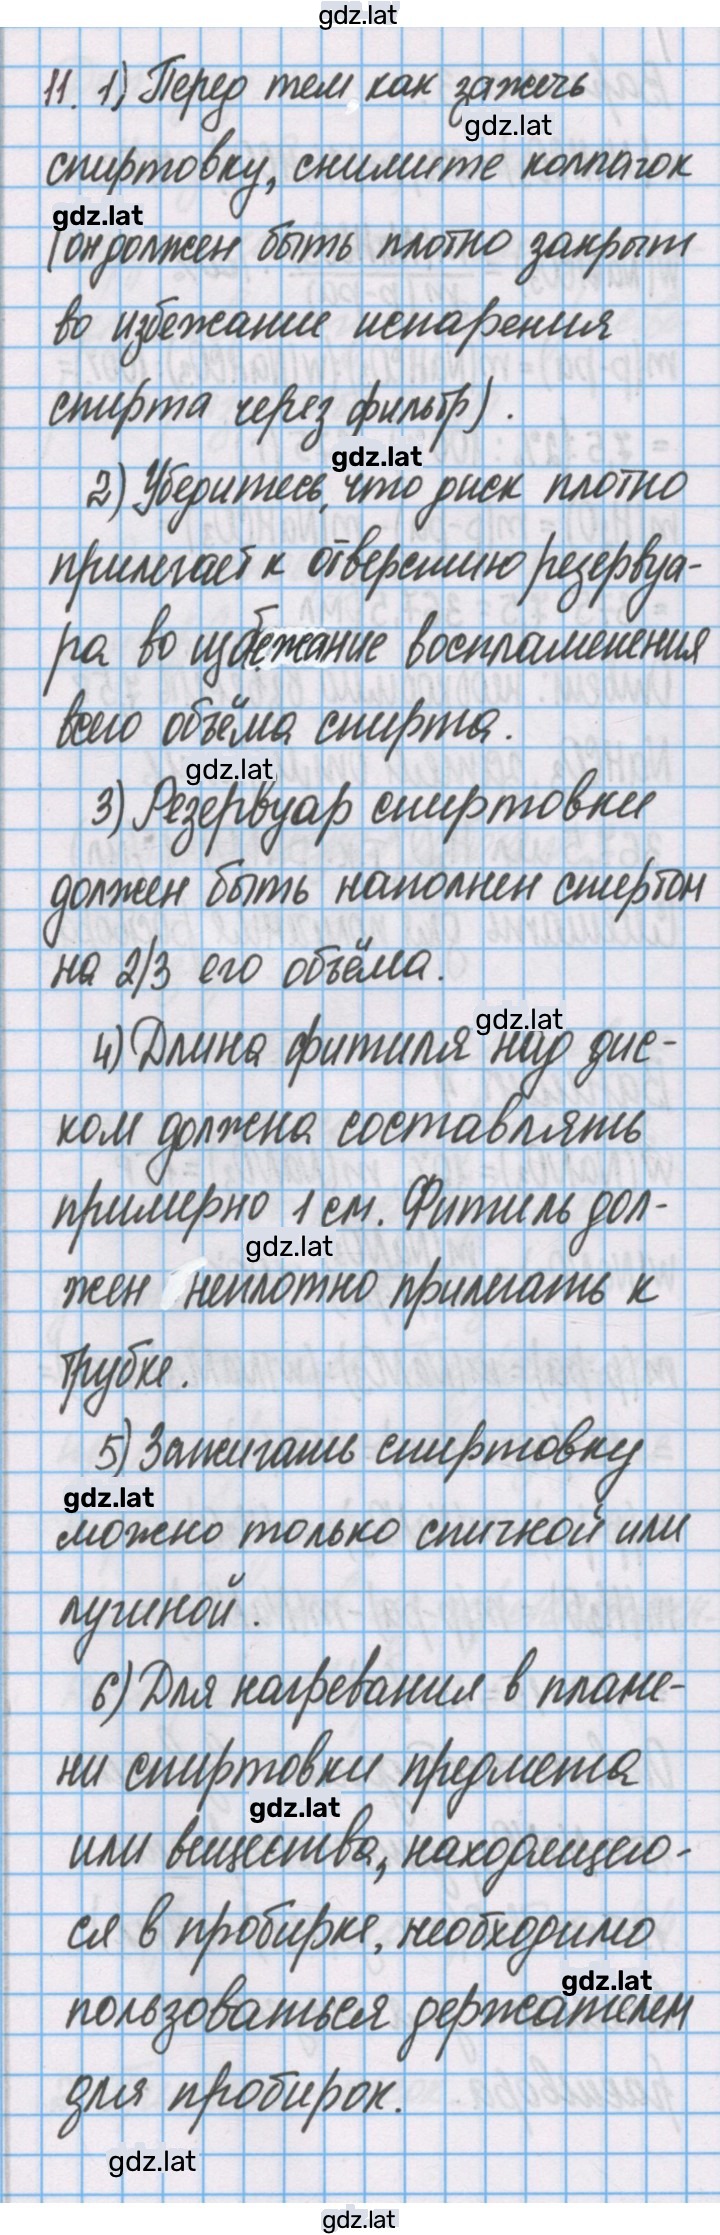 gdz.lat
11. 1) Перед тем, как зажечь
gdz.lat
спиртовку, снимите колпачок
gdz.lat
(он должен быть плотно закрыт
во избежание испарения
спирта через фильтр).
gdz.lat
2) Убедитесь, что диск плотно
прилегает к отверстию резервуа-
ра во избежание воспламенения
всего объёма спирта.
gdz.lat
3) Резервуар спиртовки
должен быть наполнен спиртом
на 2/3 его объёма.
gdz.lat
4) Длина фитиля над дис-
ком должна составлять
примерно 1 см. Фитиль дол-
gdz.lat
жен неплотно прилегать к
трубке.
5) Зажигать спиртовку
gdz.lat
можно только спичкой или
лучиной.
6) Для нагревания в пламе-
ни спиртовки предмета
gdz.lat
или вещества, находящего-
ся в пробирке, необходимо
gdz.lat
пользоваться держателем
для пробирок.
gdz.lat
gdz.lat